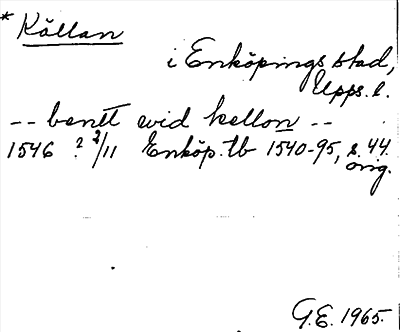 * Källan
i Enköpings stad,
Upps. l.
-- benet wid kellon --
1546 ? 2/11 Enköp. tb 1540-95, s. 44.
orig.
G.E. 1965.